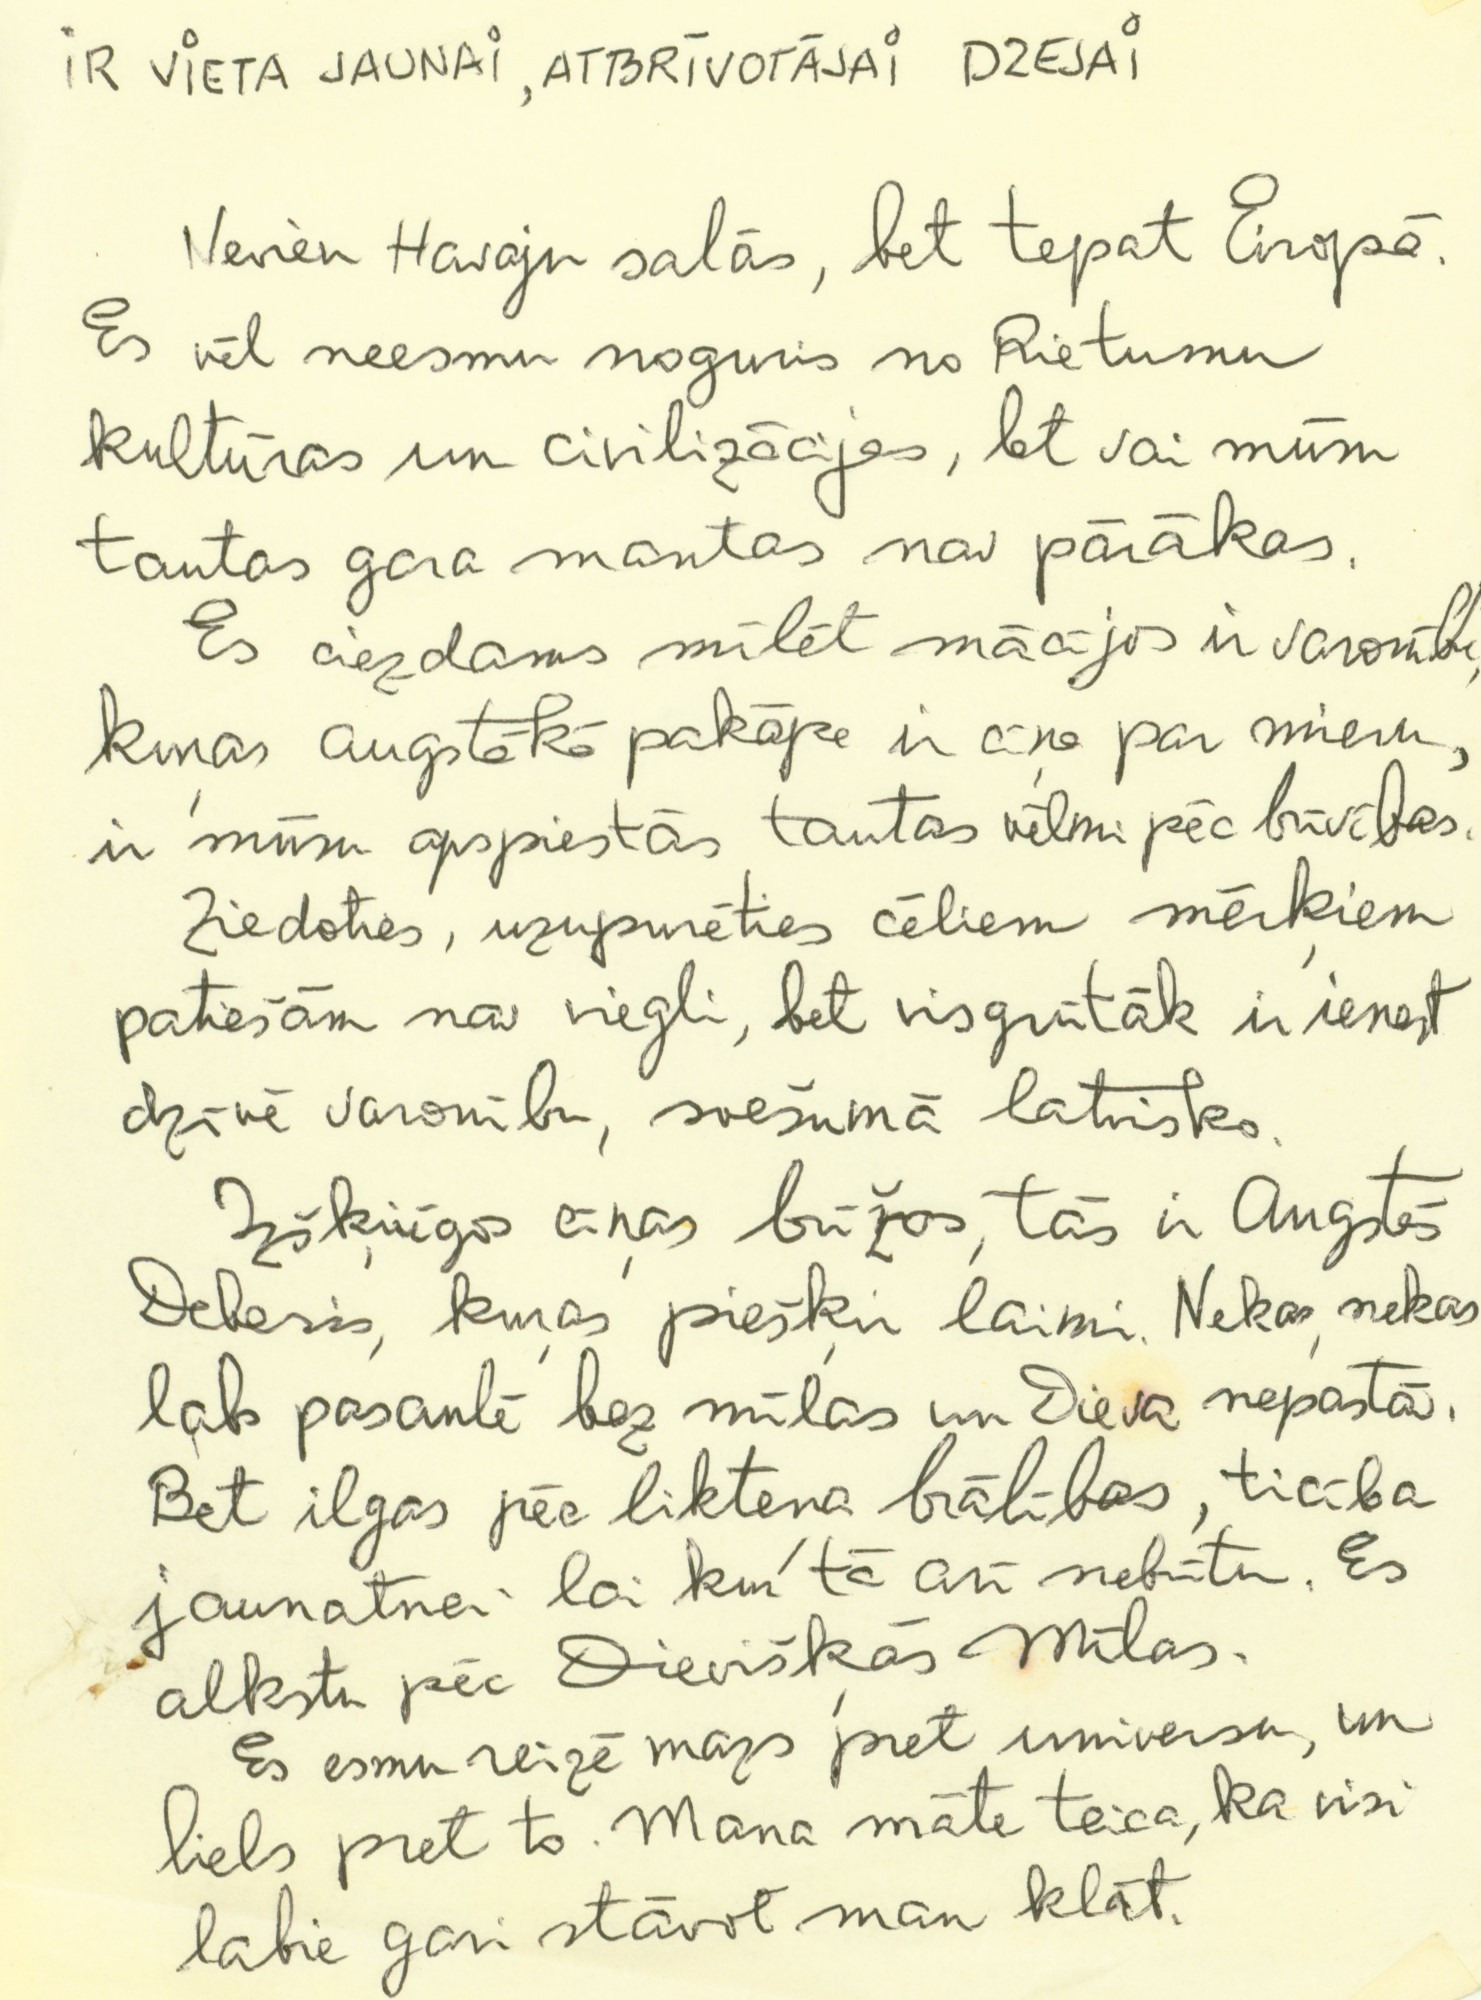 IR VIETA JAUNAI, ATBRĪVOTĀJAI DZEJAI
Nevien Havaju salās, bet tepat Eiropā.
Es vēl neesmu noguris no Rietumu
kultūras un civilizācijas, bet vai mūsu
tautas gara mantas nav pārākas.
Es ciezdams mīlēt mācījos ir varonību,
kuŗas augstākā pakāpe ir cīņa par mieru,
ir mūsu apspiestās tautas vēlmi pēc brīvības.
Ziedoties, uzupurēties cēliem mērķiem
patiešām nav viegli, bet visgrūtāk ir ienest
dzīvē varonību, svešumā latvisko.
Izšķirīgos cīņas brīžos, tās ir Augstās
Debesis, kuŗas piešķir laimi. Nekas, nekas
labs pasaulē bez mīlas un Dieva nepastāv.
Bet ilgas pēc likteņa brālības, ticība
jaunatnei lai kur tā arī nebūtu. Es
alkstu pēc Dievišķās Mīlas.
Es esmu reizē mazs pret universu, un
liels pret to. Mana māte teica, ka visi
labie gari stāvot man klāt.